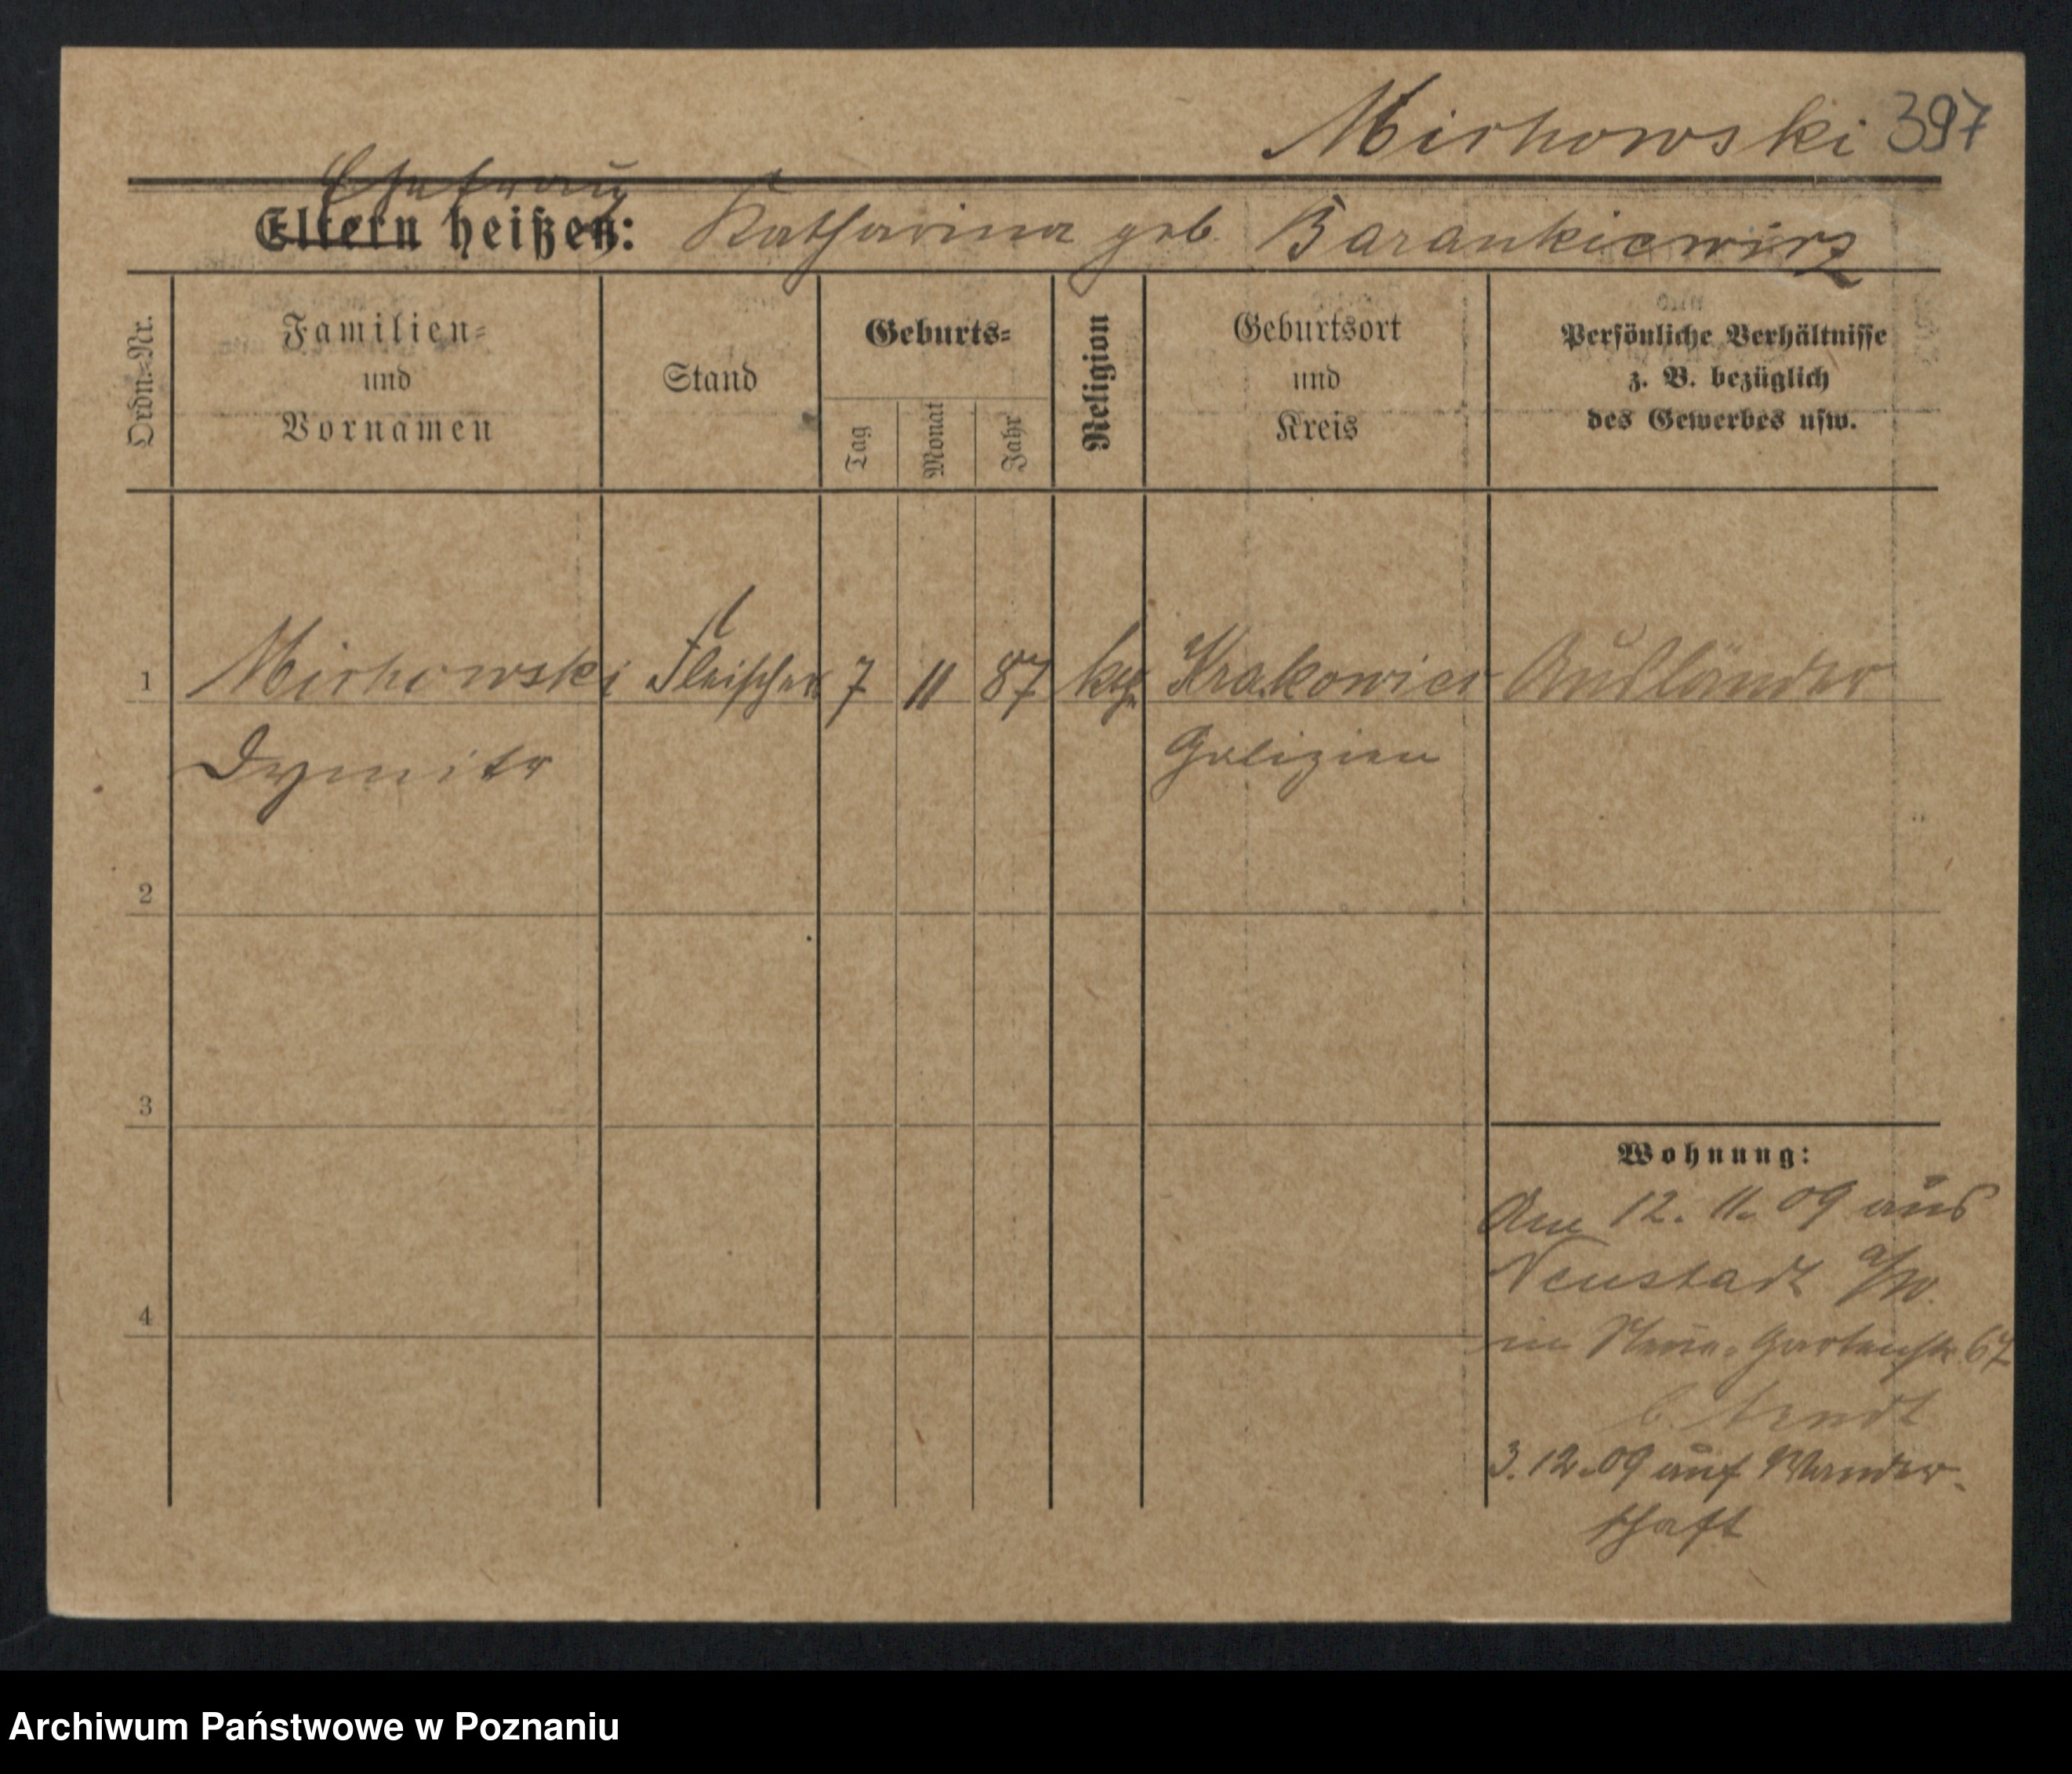 Mirhowski 397
Ehefrau
Eltern heißen: Katharina geb. Barankiewicz
Ordn.=Nr.
Familien=
und
Vornamen
Stand
Geburts=
Tag
Monat
Jahr
Religion
Geburtsort
und
Kreis
Persönliche Verhältnisse
z. B. bezüglich
des Gewerbes usw.
1 Mirhowski Fleischer 7 11 87 kath Krakowiec Ausländer
Dymitr Galizien
2
3
4
Wohnung:
Am 12. 11. 09 aus
Neustadt a/W.
in Gartenstr. 67
b. Arndt
3. 12. 09 auf Wander-
schaft
Archiwum Państwowe w Poznaniu